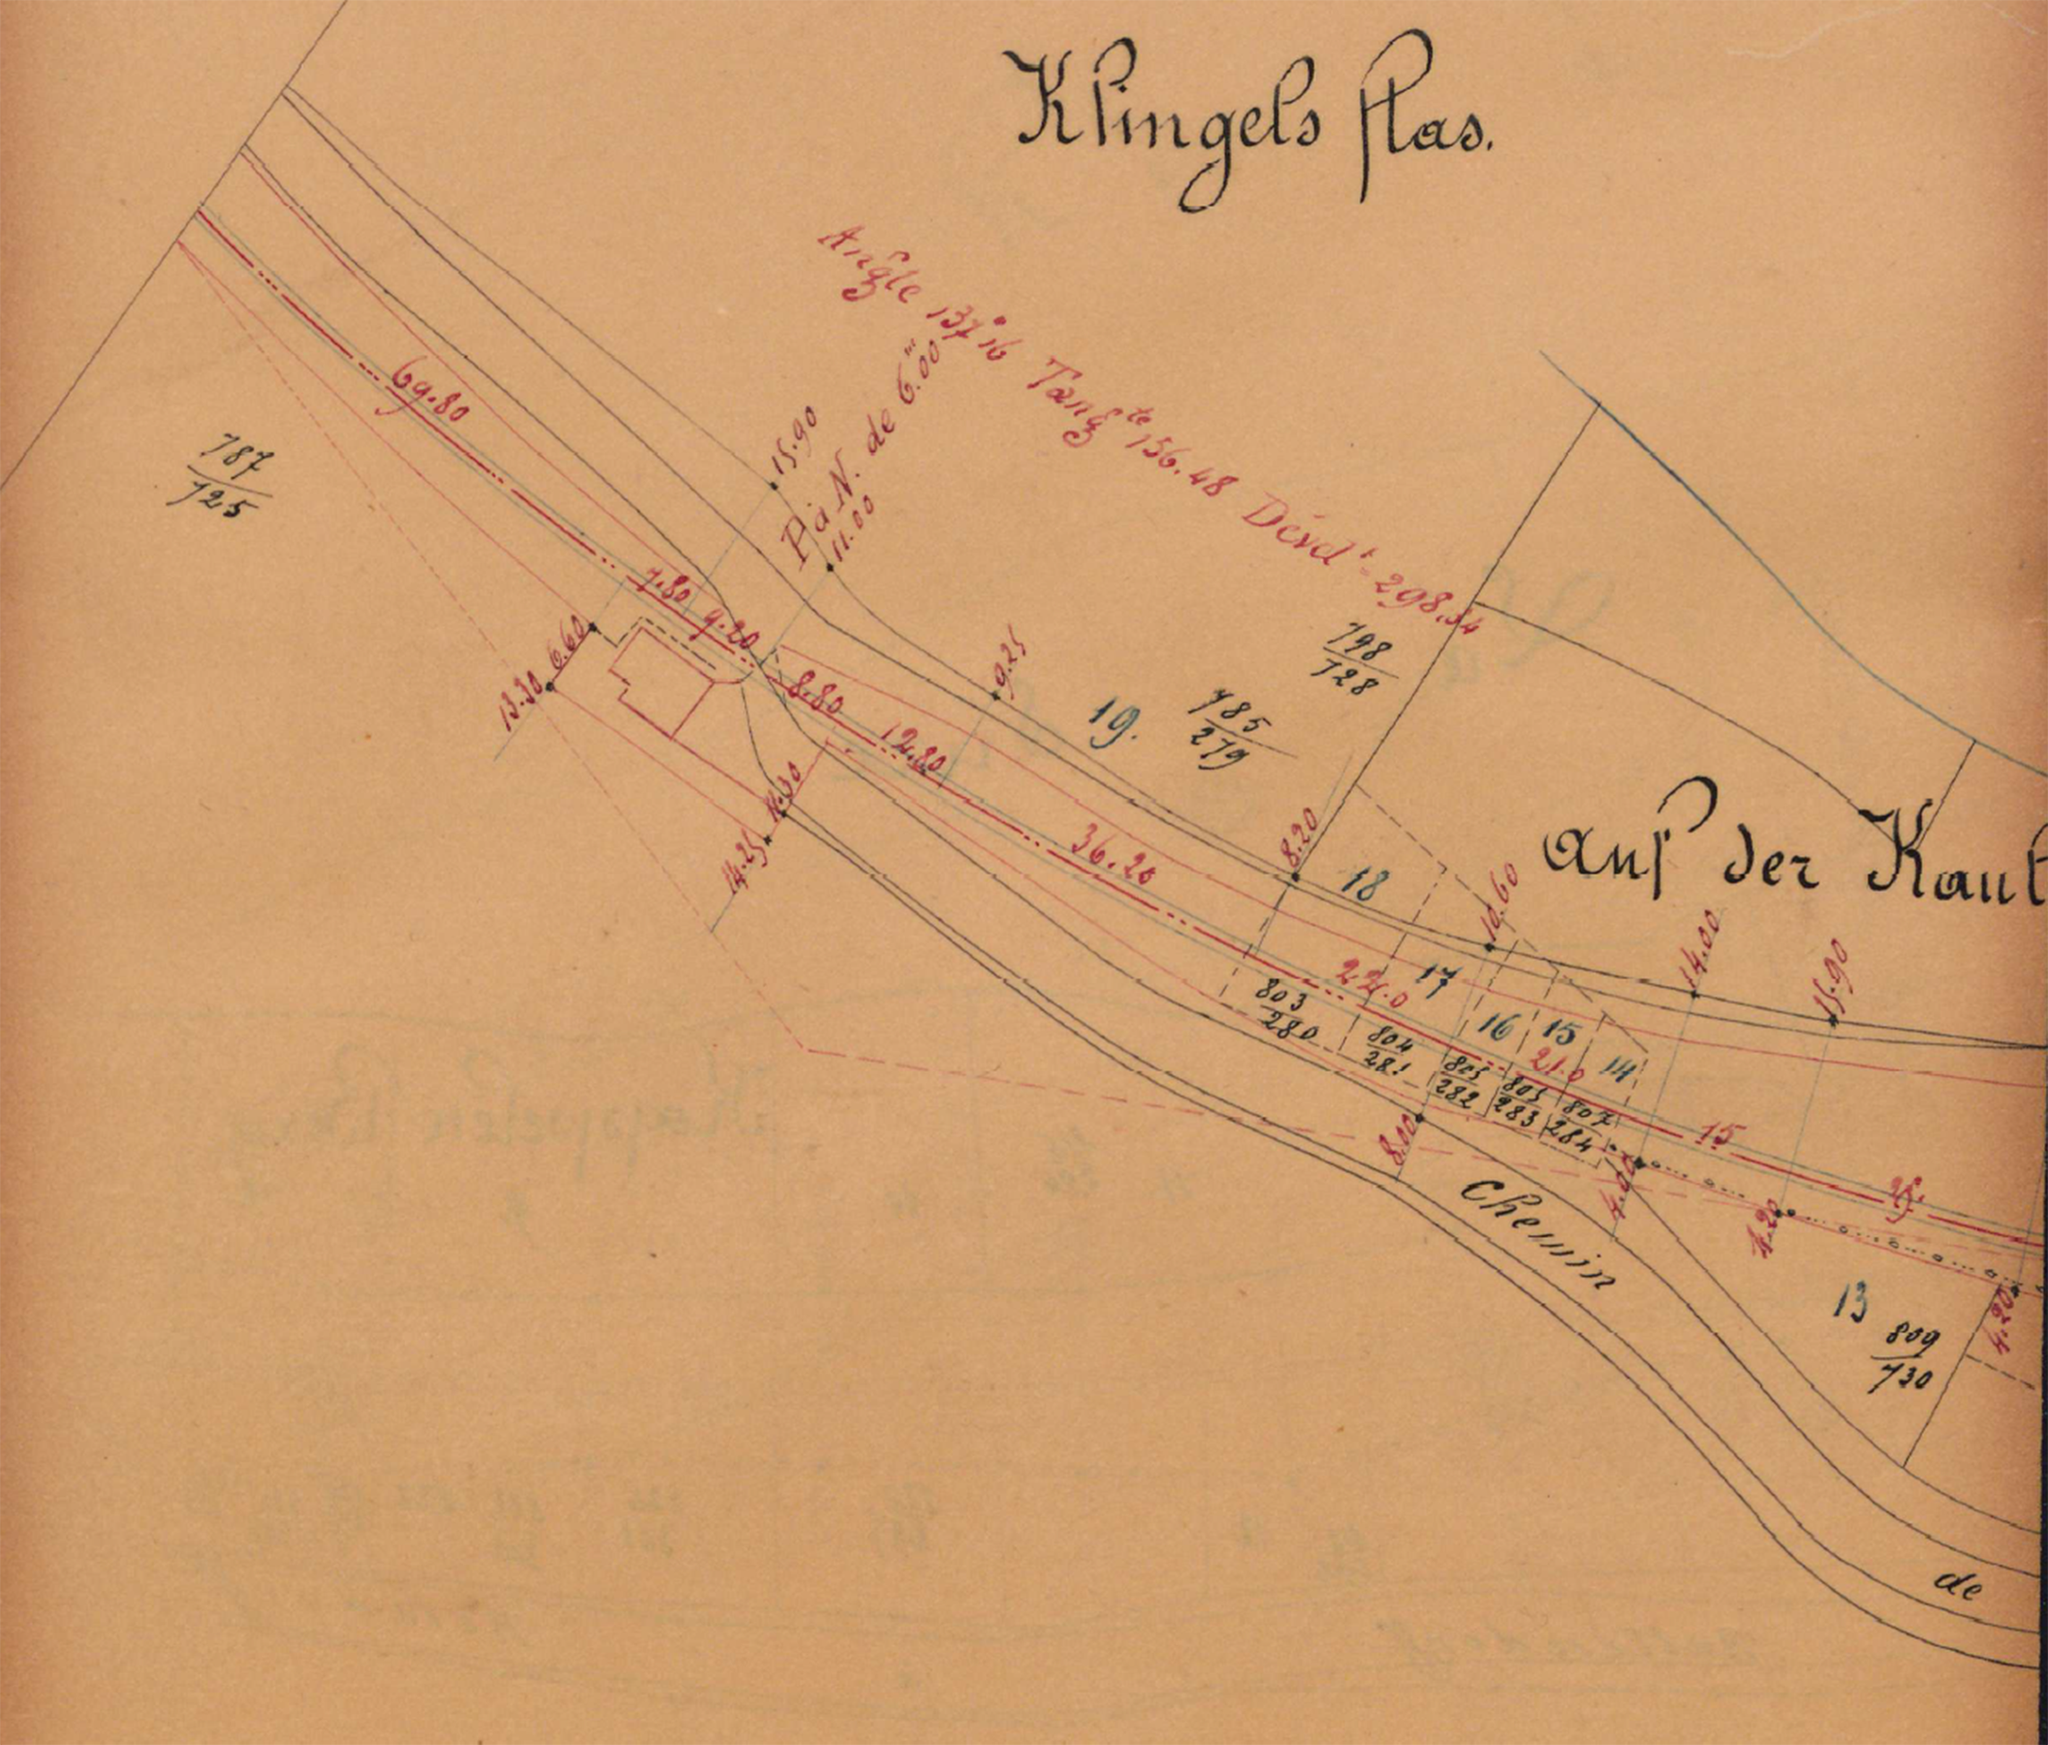 Klingels flas.
Angle 137°16 Tangte 156.48 Dévelt = 298,34
P à N. de 6.m00
11.00
15.90
69.80
787
725
7.80
9.20
6.60
13.30
8.80
12.80
9.25
19.
785
279
798
728
14.25
36.20
8.20
18
Auf der Kaut
10.60
14.00
15.90
22.0
17
803
280
804
281
16
15
21.0
14
805
282
805
283
807
284
15
8.00
4.00
4.20
Chemin
13
809
730
4.20
de